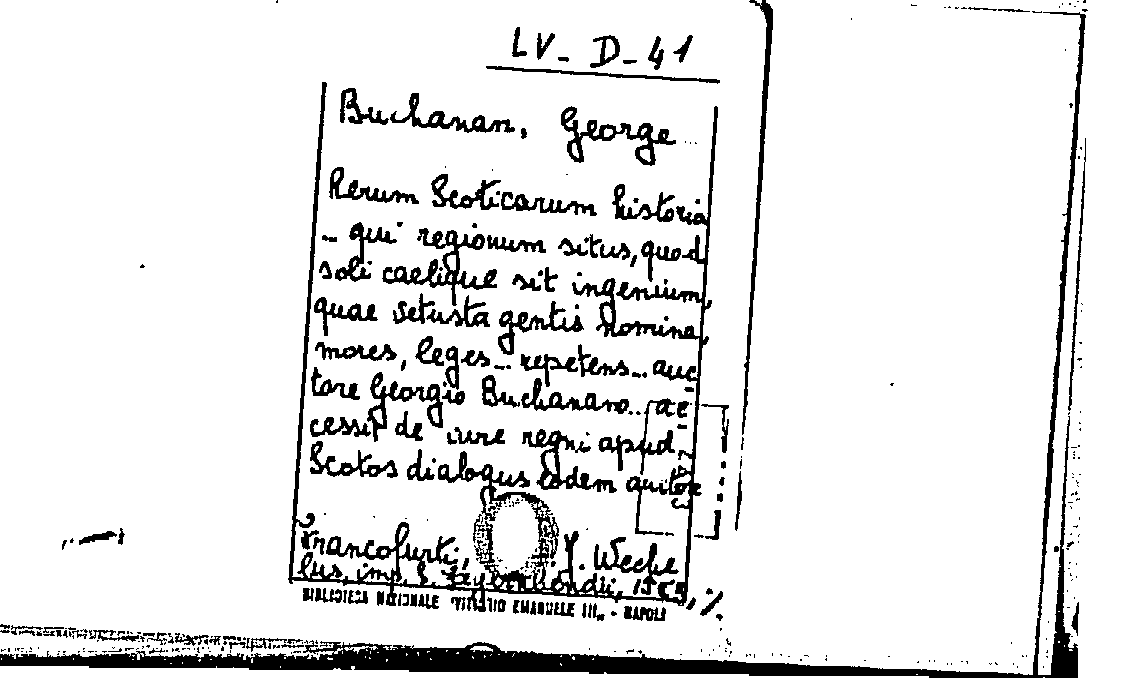 LV - D - 41
Buchanan, George
Rerum Scoticarum historia
... qui regionum situs, quod
soli caelique sit ingenium,
quae vetusta gentis nomina,
mores, leges ... repetens ... auc
tore Georgio Buchanano ... ac
cessit de iure regni apud
Scotos dialogus eodem auctore
Francofurti, J. Weche
lus, imp. S. Feyerabendii, 158
BIBLIOTECA NAZIONALE "VITTORIO EMANUELE III" - NAPOLI